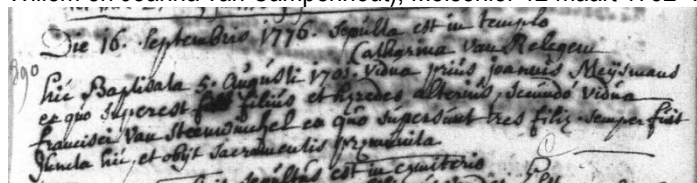 Die 16. Septembris 1776. Sepulta est in templo
Catharina van Relegem
hic Baptisata 5. Augusti 1701. vidua prius joannis Meÿsmans
ex quo superest filius et hÿredes alterius, secundo vidua
francisci van Steenwinckel ex quo supersunt tres filiÿ. semper fuit
Juncta hic, et obijt sacramentis præmunita
sepultus est in cæmiterio